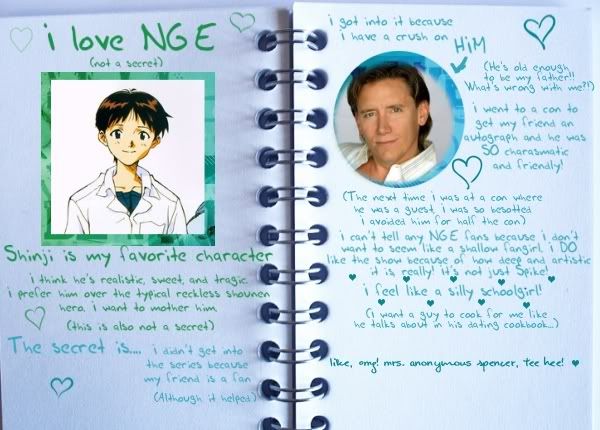 i love NGE
(not a secret)
Shinji is my favorite character
i think he's realistic, sweet, and tragic.
i prefer him over the typical reckless shounen
hero. i want to mother him
(this is also not a secret)
The secret is....
i didn't get into
the series because
my friend is a fan
(Although it helped)
i got into it because
i have a crush on HiM
(He's old enough
to be my father!!
What's wrong with me?!)
i went to a con to
get my friend an
autograph and he was
SO charasmatic
and friendly!
(The next time i was at a con where
he was a guest, i was so besotted
i avoided him for half the con)
i can't tell any NGE fans because i don't
want to seem like a shallow fangirl. i DO
like the show because of how deep and artistic
it is, really! it's not just Spike!
i feel like a silly schoolgirl!
(i want a guy to cook for me like
he talks about in his dating cookbook...)
like, omg! mrs. anonymous spencer, tee hee!